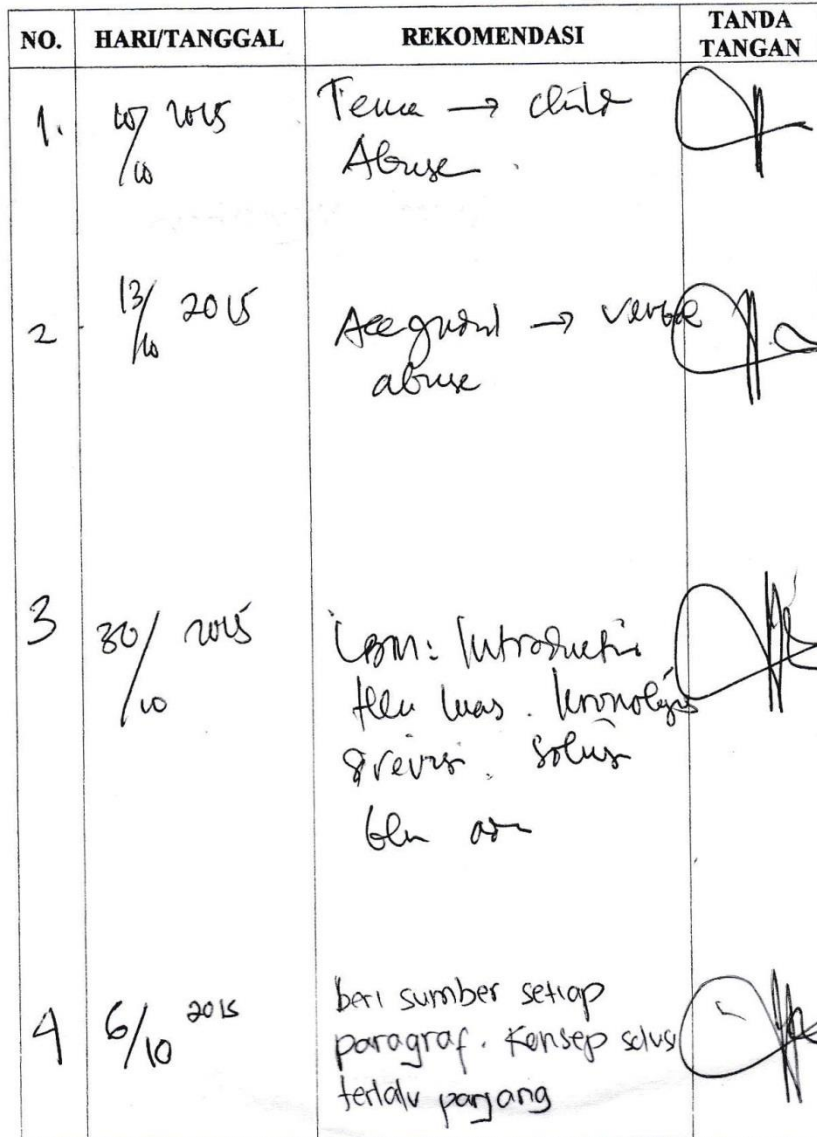 NO. HARI/TANGGAL REKOMENDASI TANDA
TANGAN
1. 2015 Tema → child
/10 Abuse.
2 13/10 2015 Acc judul → verbal
abuse
3 30/10 2015 LBM: Introduction
luas. kronologis
direvisi. Solusi
blm ada
4 6/10 2015 beri sumber setiap
paragraf. Konsep solusi
terlalu panjang